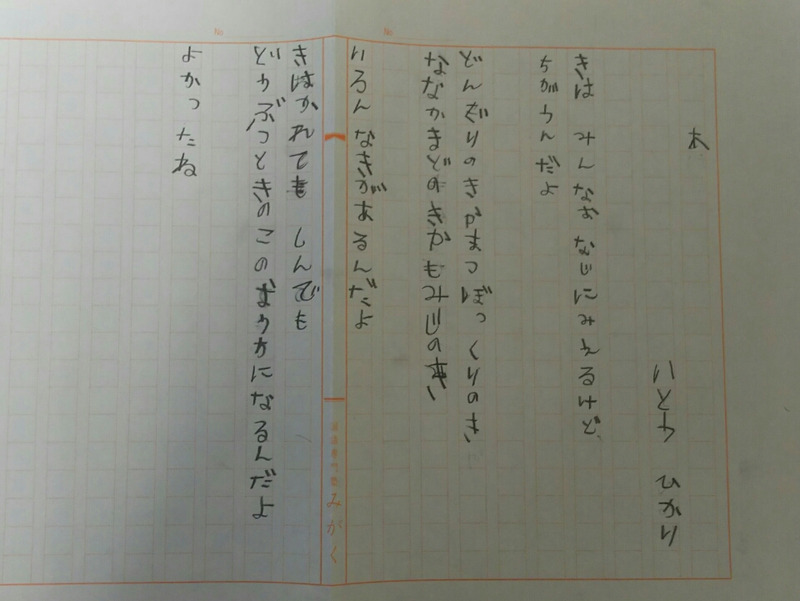 木
いとう ひかり
きは みんなおなじにみえるけど、
ちがうんだよ
どんぐりのき かまつぼっくりのき
ななかまどのきかもみじのき
いろんなきがあるんだよ
きはかれても しんでも
どうぶつときのこの おうちになるんだよ
よかったね
No
No
みがく